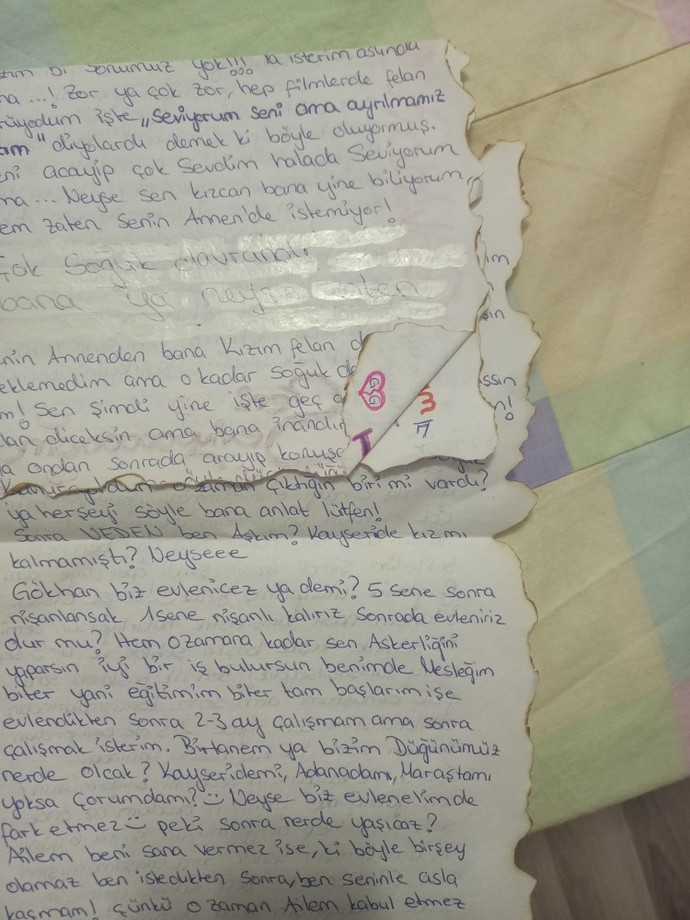 bi sonumuz yok!!! isterim
...! Zor ya çok zor, hep filmlerde felan
işte "Seviyorum seni ama ayrılmamız
" diyolardı demek ki böyle oluyormuş.
acayip çok Sevdim halada Seviyorum
... Neyse sen kızcan bana yine biliyorum
zaten senin Annen'de istemiyor!
Çok Soğuk davrandı
bana ya neyse zaten
Annenden bana Kızım felan
ama o kadar soğuk
! Sen Şimdi yine işte geç
diceksin ama bana
ondan sonrada arayıp
GG
3
T
çıktığın biri mi vardı?
ya herşeyi söyle bana anlat lütfen!
Sonra NEDEN ben Aşkım? Kayseride kız mı
kalmamıştı? Neyseee
Gökhan biz evlenicez ya demi? 5 sene sonra
nişanlansak 1sene nişanlı kalırız sonrada evleniriz
dur mu? Hem o zamana kadar sen Askerliğini
yaparsın iyi bir iş bulursun benimde Mesleğim
biter yani eğitimim biter tam başlarım işe
evlendikten sonra 2-3 ay çalışmam ama sonra
çalışmak isterim. Birtanem ya bizim Düğünümüz
nerde olcak? Kayseridemi, Adanadamı, Maraştamı
yoksa Çorumdamı? Neyse biz evlenelimde
fark etmez peki sonra nerde yaşıcaz?
Ailem beni sana vermez ise, ki böyle birşey
olamaz ben istedikten sonra, ben seninle asla
kaçmam! Çünkü o zaman Ailem kabul etmez